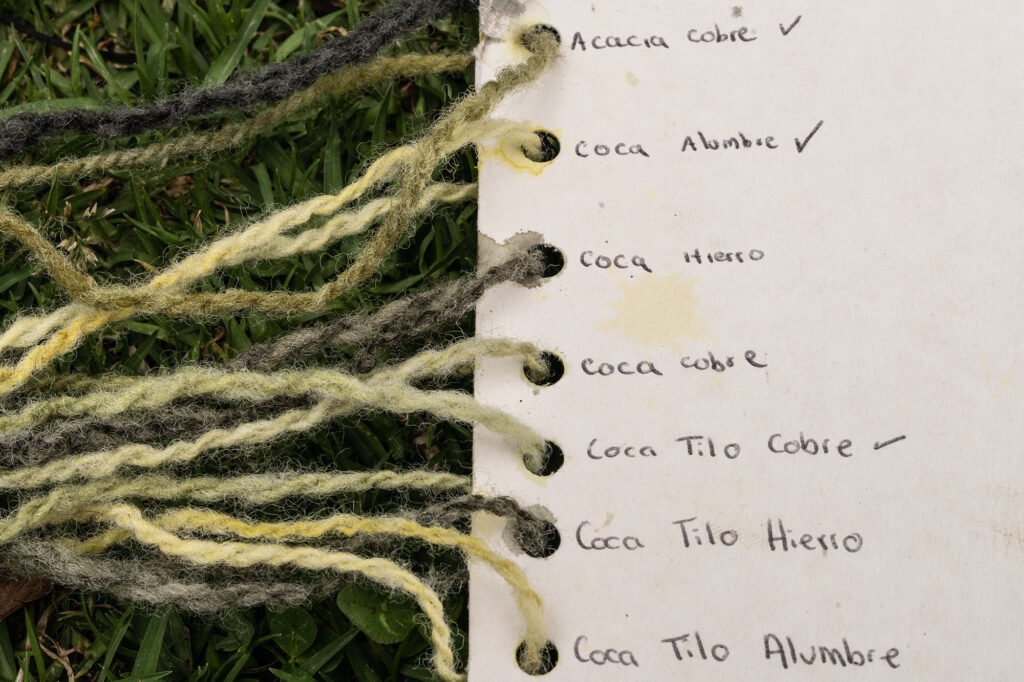 Acacia cobre ✓
coca Alumbre ✓
coca Hierro
coca cobre
Coca Tilo Cobre ✓
Coca Tilo Hierro
Coca Tilo Alumbre